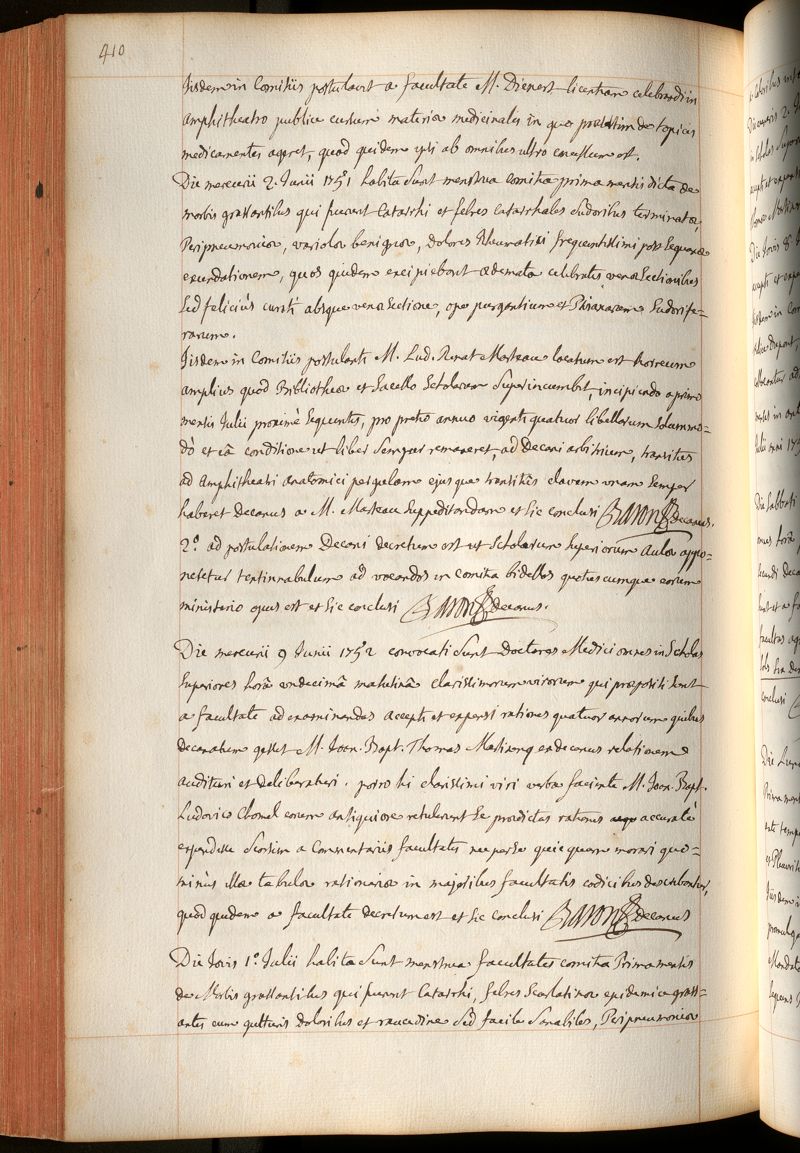 410
Iisdem in Comitiis postulavit a facultate M. Dienert licentiam celebrandi in
amphitheatro publice cursum materiae medicinales in quo praesertim de topicis
medicamentis ageret, quod quidem ipsi ab omnibus ultro concessum est.
Die mercurii 2. Junii 1751 habita sunt menstrua comitia prima mensis dicta de
morbis grassantibus qui fuerunt Catarrhi et febres catarrhales sudoribus terminatae,
Peripneumoniae, variolae benignae, dolores Rheumatici frequentissimi post sequanae
exundationem, quos quidem excipiebant oedemata celebratis venae sectionibus
sed felicius curati absque venae sectione, ope purgantium et Ptisanarum sudorife=
rarum.
Iisdem in comitiis postulanti M. Lud. Renat Marteau locatum est horreum
amplius quod Bibliothecae et sacello Scholarum superincumbit, incipiendo a primo
mensis Julii proximè sequentis, pro pretio annuo viginti quatuor libellarum solummo=
dò et eâ conditione ut liber semper remaneret, ad Decani arbitrium, transitus
ad Amphitheatri anatomici pergulam ejusque transitûs clavem unam semper
haberet Decanus a M. Marteau suppeditandam et sic conclusi Baron decanus.
2.º ad postulationem Decani decretum est ut scholarum superiorum aulae appo=
neretur tintinnabulum ad vocandos in comitia bidellos quotiescumque eorum
ministerio opus est et sic conclusi Baron decanus.
Die mercurii 9 Junii 1752 convocati sunt Doctores Medici omnes in Scholas
superiores horâ undecimâ matutinâ clarissimorum virorum qui praepositi sunt
a facultate ad examinandas accepti et expensi rationes quatuor annorum quibus
decanatum gessit M. Joan. Bapt. Thomas Martinenq exdecanus relationem
audituri et deliberaturi. porro hi clarissimi viri verba faciente M. Joan. Bapt.
Ludovico Chomel eorum antiquiore retulerunt se praedictas rationes accuratè
expendisse seorsim a Commentariis facultatis nec per se quicquam morari quo=
minùs illae tabulae rationariae in majoribus facultatis codicibus describantur,
quod quidem a facultate decretum est et sic conclusi Baron decanus
Die Jovis 1.º Julii habita sunt menstrua facultatis comitia Prima mensis
de Morbis grassantibus qui fuerunt Catarrhi, febres scarlatinae epidemicae grass=
antes cum gutturis doloribus et raucedine sed facile sanabiles, Peripneumoniae